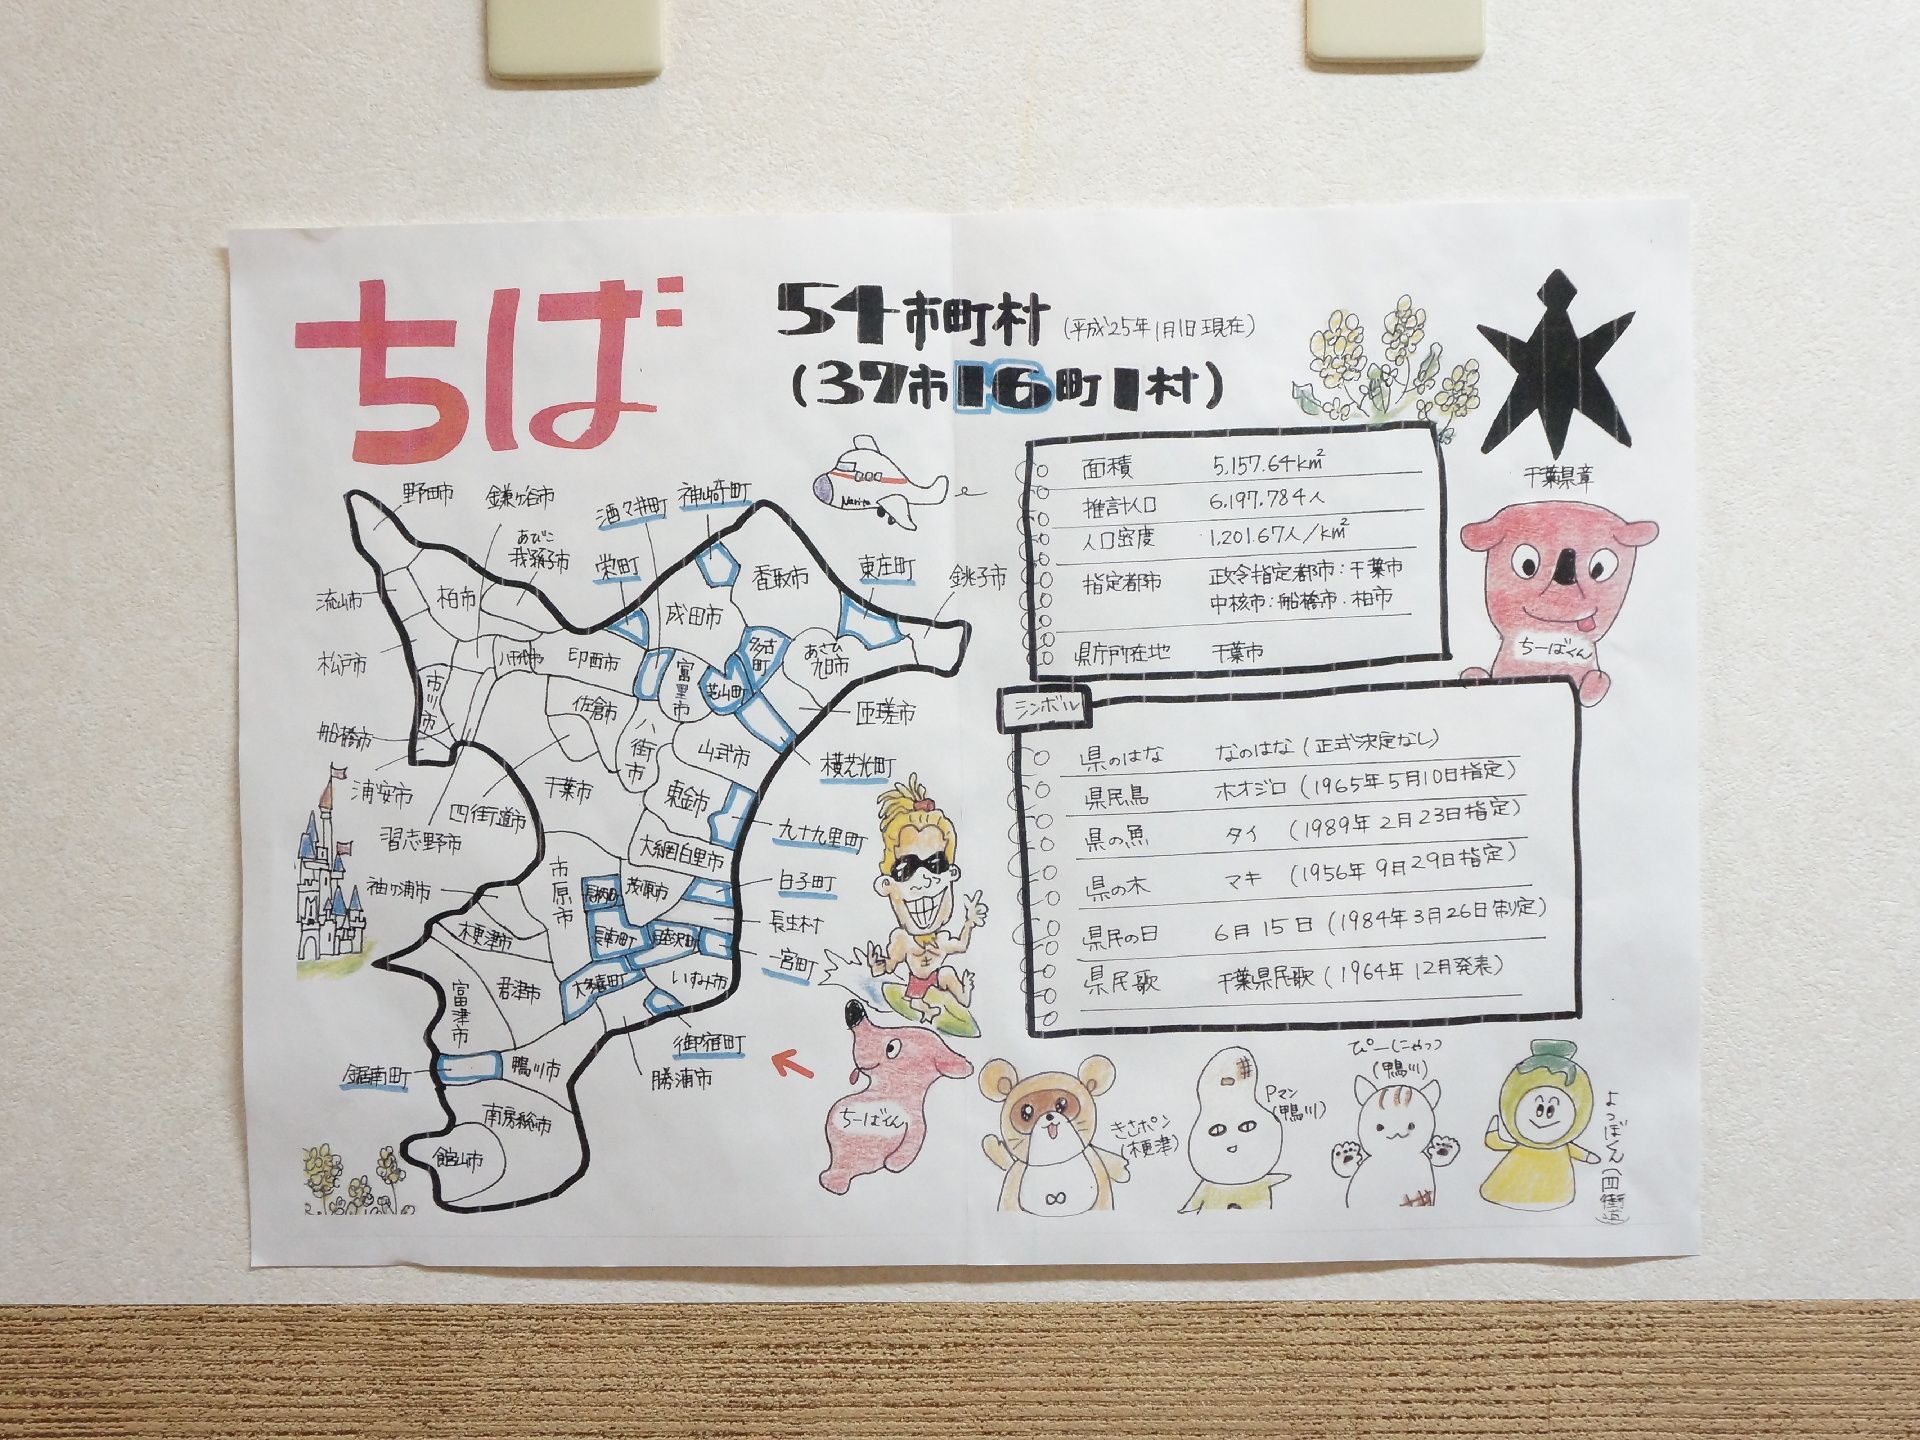 ちば
54市町村(平成25年1月1日現在)
(37市16町1村)
千葉県章
Narita
野田市
鎌ヶ谷市
あびこ
我孫子市
酒々井町
神崎町
栄町
香取市
東庄町
銚子市
流山市
柏市
成田市
松戸市
八千代市
印西市
富里市
多古町
芝山町
あさひ
旭市
市川市
佐倉市
八街市
山武市
匝瑳市
船橋市
横芝光町
浦安市
四街道市
千葉市
東金市
習志野市
九十九里町
大網白里市
袖ヶ浦市
市原市
長柄町
茂原市
白子町
木更津市
長南町
睦沢町
長生村
一宮町
富津市
君津市
大多喜町
いすみ市
御宿町
鋸南町
鴨川市
勝浦市
南房総市
館山市
面積 5,157.64km²
推計人口 6,197,784人
人口密度 1,201.67人/km²
指定都市 政令指定都市:千葉市
中核市:船橋市.柏市
県庁所在地 千葉市
ちーばくん
シンボル
県のはな なのはな(正式決定なし)
県民鳥 ホオジロ(1965年5月10日指定)
県の魚 タイ (1989年2月23日指定)
県の木 マキ (1956年9月29日指定)
県民の日 6月15日(1984年3月26日制定)
県民歌 千葉県民歌(1964年12月発表)
ちーばくん
きさポン
(木更津)
Pマン
(鴨川)
ぴーにゃっつ
(鴨川)
よつぼくん(四街道)